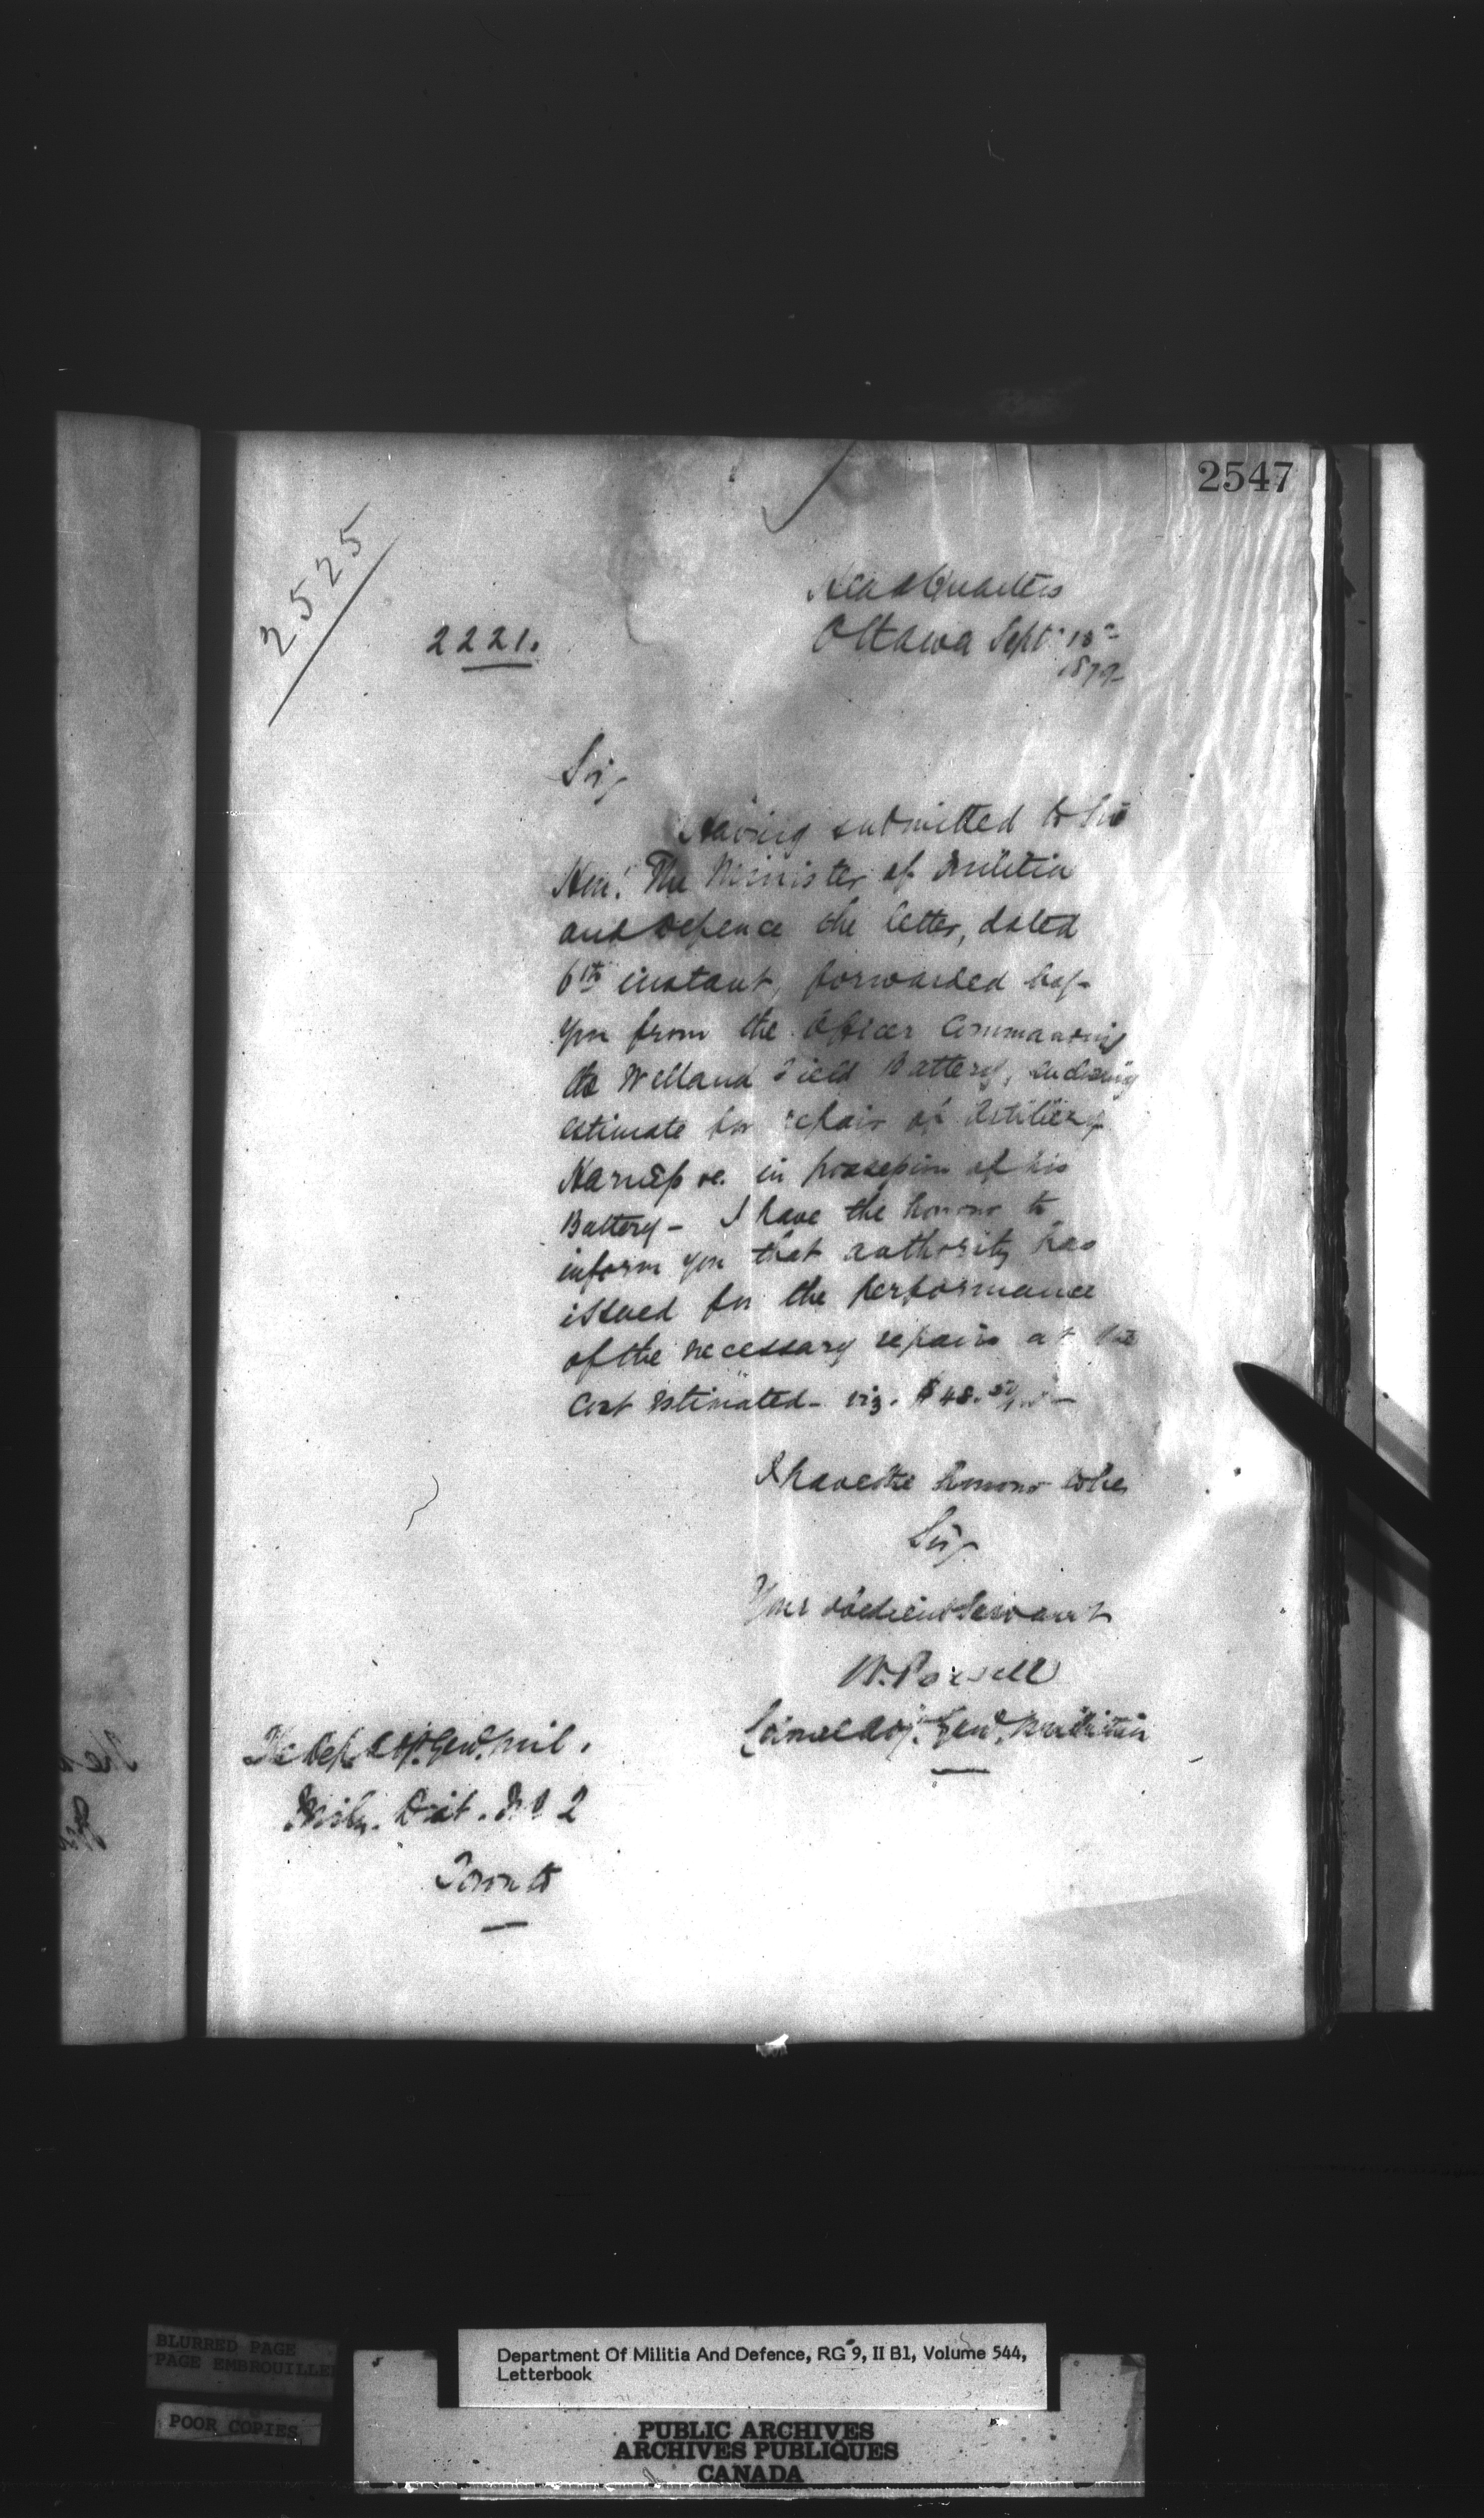 2547
2525
2221.
Head Quarters
Ottawa Sept. 18th
1879
Sir,
Having submitted to the
Hon. The Minister of Militia
and Defence the letter, dated
6th instant, forwarded by
you from the Officer Commanding
the Welland Field Battery, enclosing
estimate for repair of Artillery
Harness &c. in possession of his
Battery - I have the honour to
inform you that authority has
issued for the performance
of the necessary repairs at the
cost estimated - viz. $48.50/100 -
I have the honour to be,
Sir,
Your obedient Servant
W. Powell
Colonel Adj. Genl. Militia
The Dep. Adj. Genl. Mil.
Mily. Dist. No 2
Toronto
BLURRED PAGE
PAGE EMBROUILLEE
POOR COPIES
Department Of Militia And Defence, RG 9, II B1, Volume 544,
Letterbook
PUBLIC ARCHIVES
ARCHIVES PUBLIQUES
CANADA